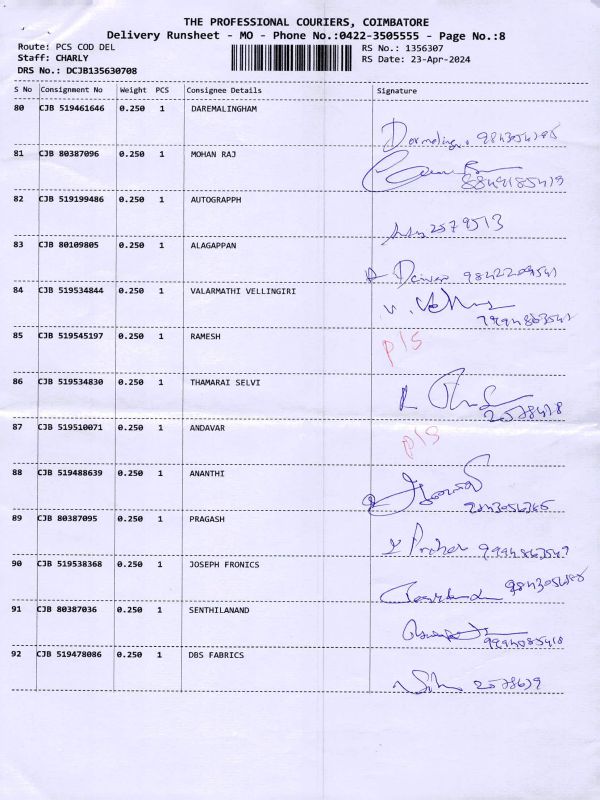 THE PROFESSIONAL COURIERS, COIMBATORE
Delivery Runsheet - MO - Phone No.:0422-3505555 - Page No.:8
Route: PCS COD DEL RS No.: 1356307
Staff: CHARLY RS Date: 23-Apr-2024
DRS No.: DCJB135630708
S No Consignment No Weight PCS Consignee Details Signature
80 CJB 519461646 0.250 1 DAREMALINGHAM
81 CJB 80387096 0.250 1 MOHAN RAJ
82 CJB 519199486 0.250 1 AUTOGRAPPH
2579513
83 CJB 80109805 0.250 1 ALAGAPPAN
84 CJB 519534844 0.250 1 VALARMATHI VELLINGIRI
85 CJB 519545197 0.250 1 RAMESH
p/s
86 CJB 519534830 0.250 1 THAMARAI SELVI
87 CJB 519510071 0.250 1 ANDAVAR
p/s
88 CJB 519488639 0.250 1 ANANTHI
89 CJB 80387095 0.250 1 PRAGASH
90 CJB 519538368 0.250 1 JOSEPH FRONICS
91 CJB 80387036 0.250 1 SENTHILANAND
92 CJB 519478086 0.250 1 DBS FABRICS